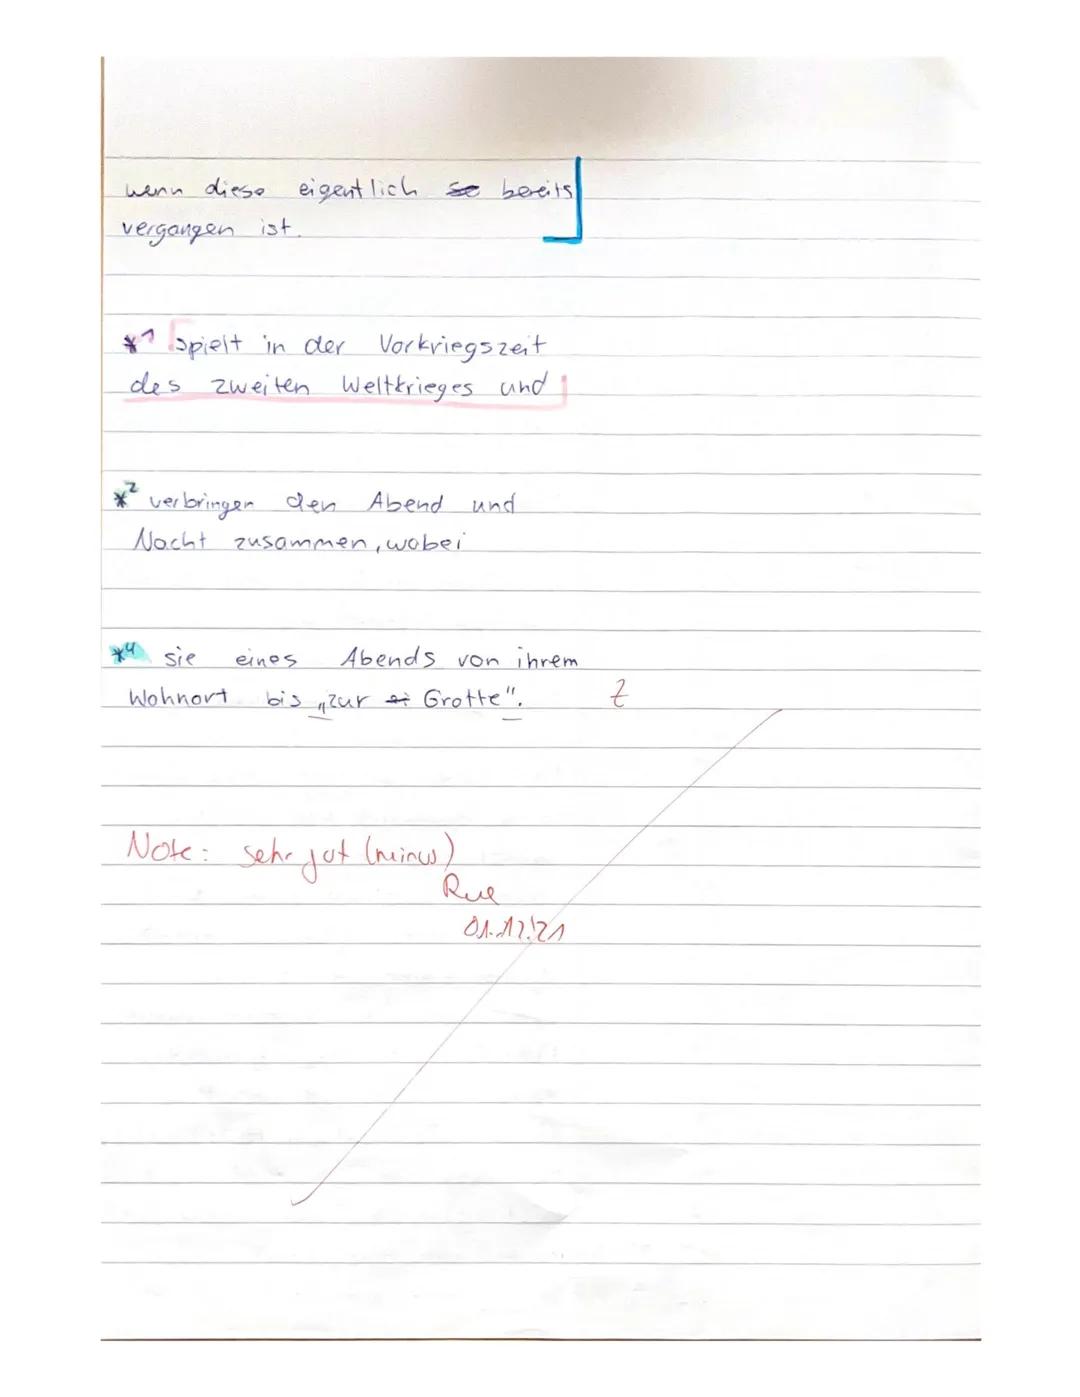 wenn diese eigentlich se bereits
vergangen ist.
*1 spielt in der Vorkriegszeit
des zweiten Weltkrieges und
*2 verbringen den Abend und
Nacht zusammen, wobei
*4 sie eines Abends von ihrem
Wohnort bis „zur ei Grotte".
Z
Note: sehr gut (minus)
Rue
01.12.'21